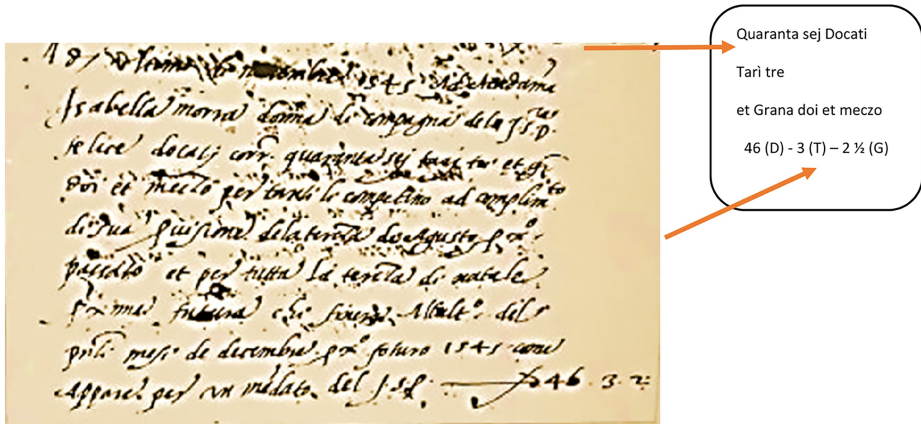 A di ultimo de novembre 1545 Ad Madama
Isabella morra donna di compagna dela Is.
felice docatj corr. quaranta sej tarj tre et gr.
doi et meczo per tanti le competino ad complim.to
di sua p.uisione dela terza de Agusto p.xo
passato et per tutta la terza di natale
p.xima futura che finera
p.nti mese de decembre p.xo futuro 1545 come
Appare per un mãdato del Ill. 46 . 3 . 2
Quaranta sej Docati
Tarì tre
et Grana doi et meczo
46 (D) - 3 (T) – 2 ½ (G)